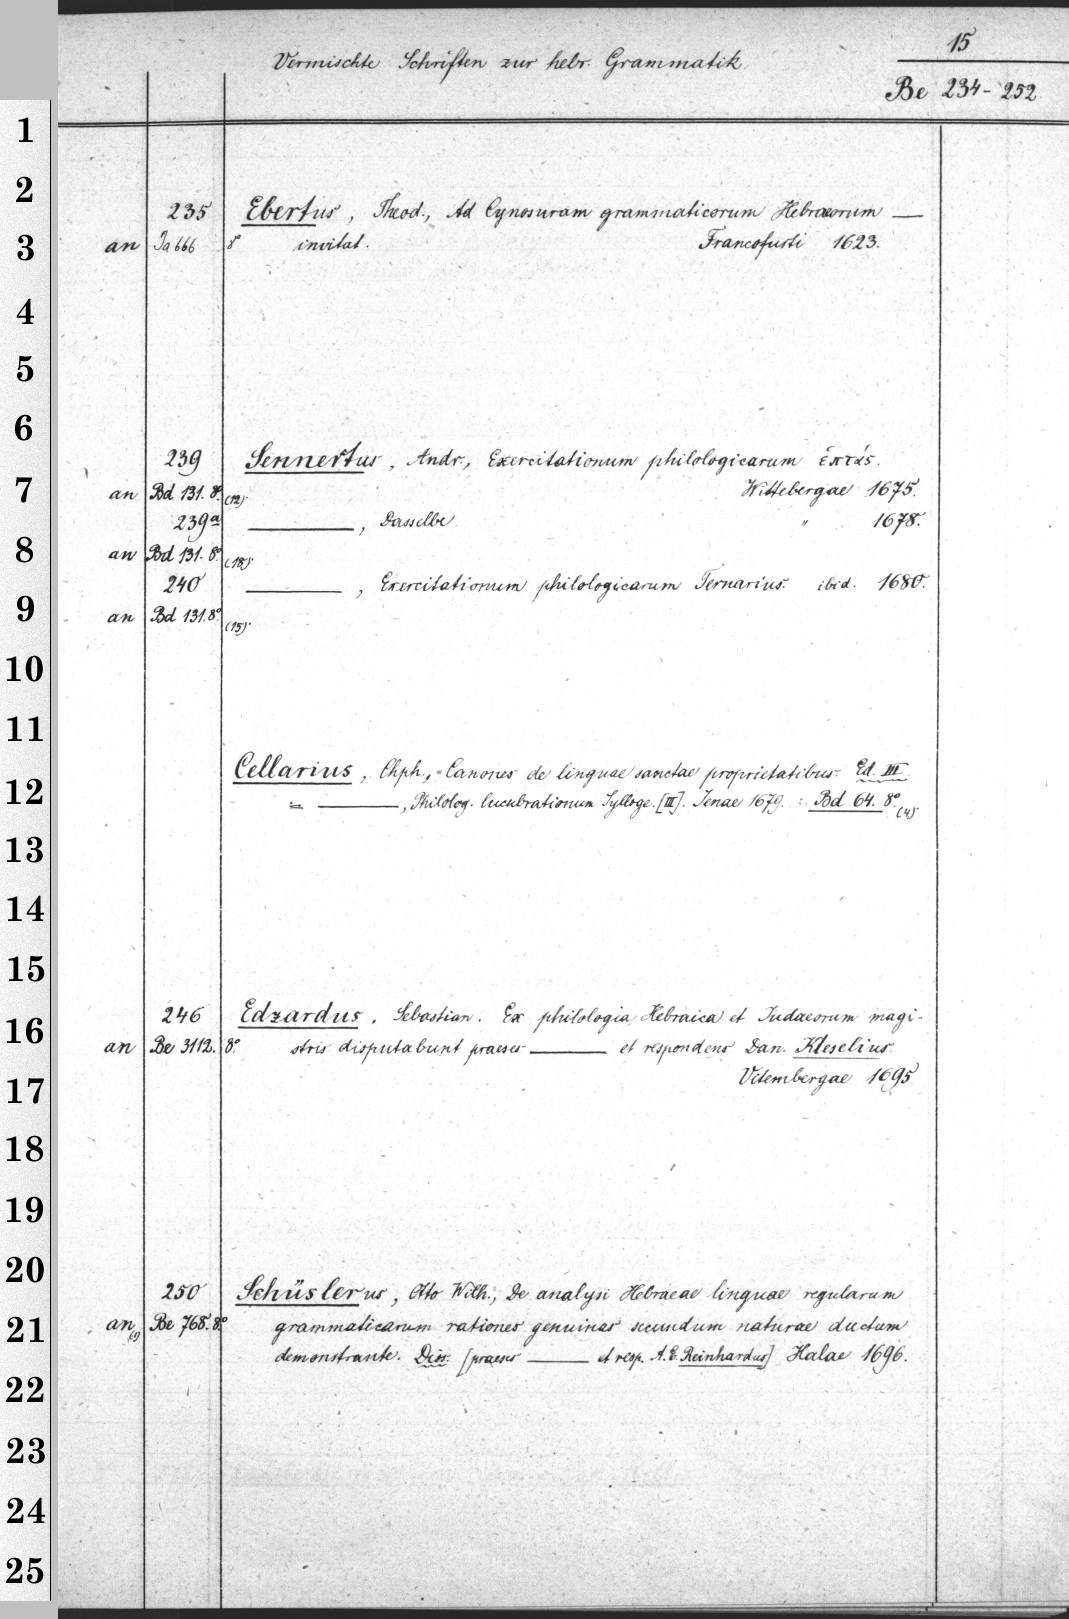 15
Vermischte Schriften zur hebr. Grammatik
Be 234-252
1
2
3
4
5
6
7
8
9
10
11
12
13
14
15
16
17
18
19
20
21
22
23
24
25
235 Ebertus, Theod., Ad Cynosuram grammaticorum Hebraeorum —
an Ja 666 8° invitat. Francofurti 1623.
239 Sennertus, Andr., Exercitationum philologicarum ἑπτάς.
an Bd 131. 8°. (12). Wittebergae 1675.
239a —, Dasselbe. " 1678.
an Bd 131. 8°. (18).
240 —, Exercitationum philologicarum Ternarius. ibid. 1680.
an Bd 131. 8°. (15).
Cellarius, Chph., Canones de linguae sanctae proprietatibus. Ed. III.
= —, Philolog. lucubrationum Sylloge. [III]. Jenae 1679. : Bd 64. 8°. (4).
246 Edzardus, Sebastian. Ex philologia Hebraica et Judaeorum magi-
an Be 3112. 8°. stris disputabunt praeses — et respondens Dan. Kleselius.
Vitembergae 1695
250 Schüslerus, Otto Wilh., De analysi Hebraeae linguae regularum
an Be 768. 8° grammaticarum rationes genuinas secundum naturae ductum
demonstrante. Diss. [praeses — et resp. A. E. Reinhardus] Halae 1696.